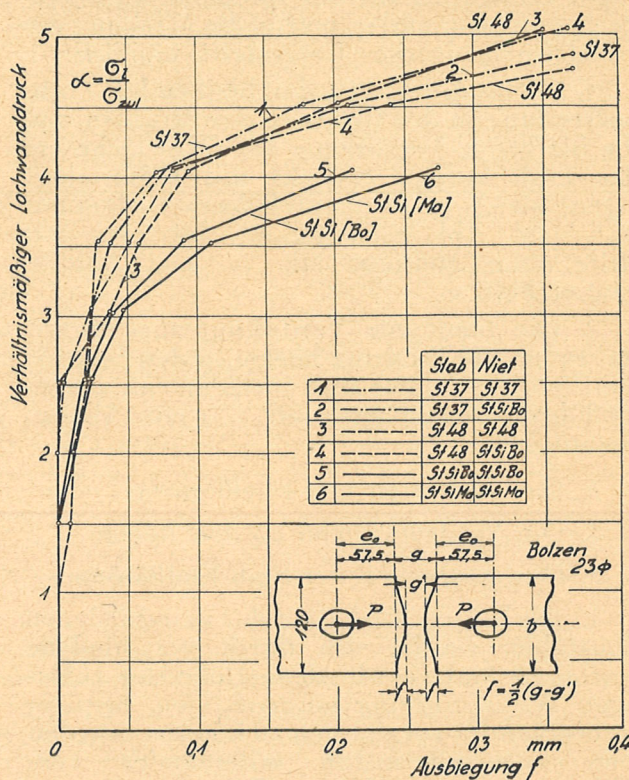 Verhältnismäßiger Lochwanddruck
5
4
3
2
1
0
α = σl / σzul
St 48 3 4
St 37
2
St 48
1
4
St 37
5
6
St Si [Ma]
St Si [Bo]
3
Stab Niet
1 St 37 St 37
2 St 37 StSiBo
3 St 48 St 48
4 St 48 StSiBo
5 StSiBo StSiBo
6 StSiMa StSiMa
e₀ e₀
57,5 g 57,5
Bolzen
23ϕ
g'
P P
120 b
f f f=½(g-g')
0 0,1 0,2 0,3 mm 0,4
Ausbiegung f